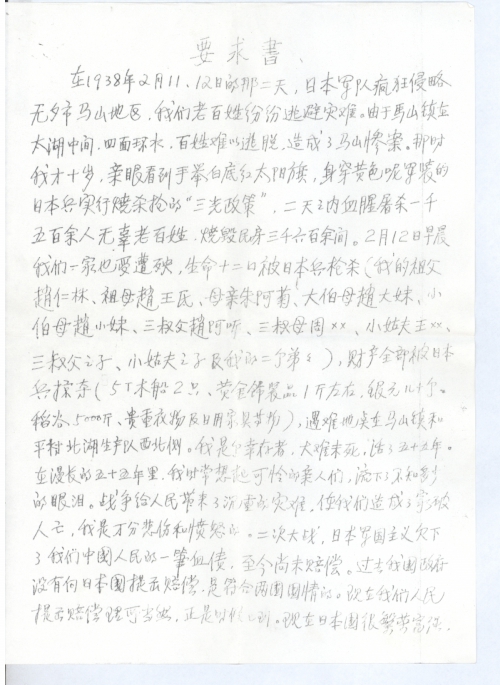 要求書
在1938年2月11、12日的那二天，日本军队疯狂侵略
无夕市马山地区，我们老百姓纷纷逃避灾难。由于馬山镇在
太湖中间，四面环水，百姓难以逃脱，造成了马山惨案。那时
我才十岁，亲眼看到手举白底红太阳旗，身穿黄色呢军装的
日本兵实行烧杀抢的“三光政策”，二天之内血腥屠杀一千
五百余人无辜老百姓，烧毁民房三千六百余间。2月12日早晨
我们一家也受遭殃，生命十二口被日本兵枪杀（我的祖父
趙仁林、祖母趙王氏、母亲朱阿菊、大伯母趙大妹、小
伯母趙小妹、三叔父趙阿、三叔母周××、小姑夫王××、
三叔父之子、小姑夫之子及我的二个弟弟），财产全部被日本
兵掠夺（5丁木船2只、黄金饰装品1斤左右，银元几十个、
稻谷5000斤、貴重衣物及日用家具等物），遇难地点在马山镇和
平村北湖生产队西北侧。我是个幸存者，大难未死，活了五十五年。
在漫长的五十五年里，我时常想起可怜的亲人们，流下了不知多少
的眼泪。战争给人民带来了沉重的灾难，使我们造成了家破
人亡，我是万分悲伤和愤怒的。二次大战，日本军国主义欠下
了我们中國人民的一筆血债，至今尚未赔偿。过去我國政府
没有向日本國提出赔偿，是符合两國國情的。现在我们人民
提出赔偿理可当然，正是时候。现在日本國很繁荣富强，